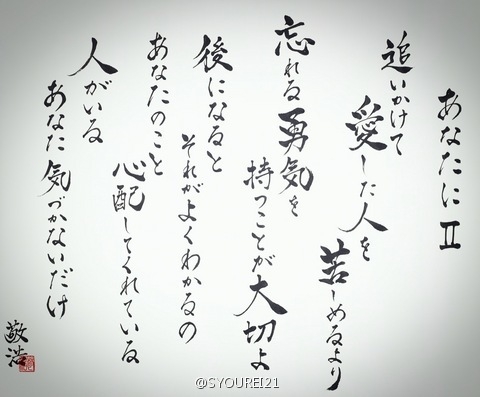 あなたに Ⅱ
追いかけて
愛した人を
苦しめるより
忘れる勇気を
持つことが大切よ
後になると
それがよくわかるの
あなたのこと
心配してくれている
人がいる
あなた気づかないだけ
敬浩
@SYOUREI21